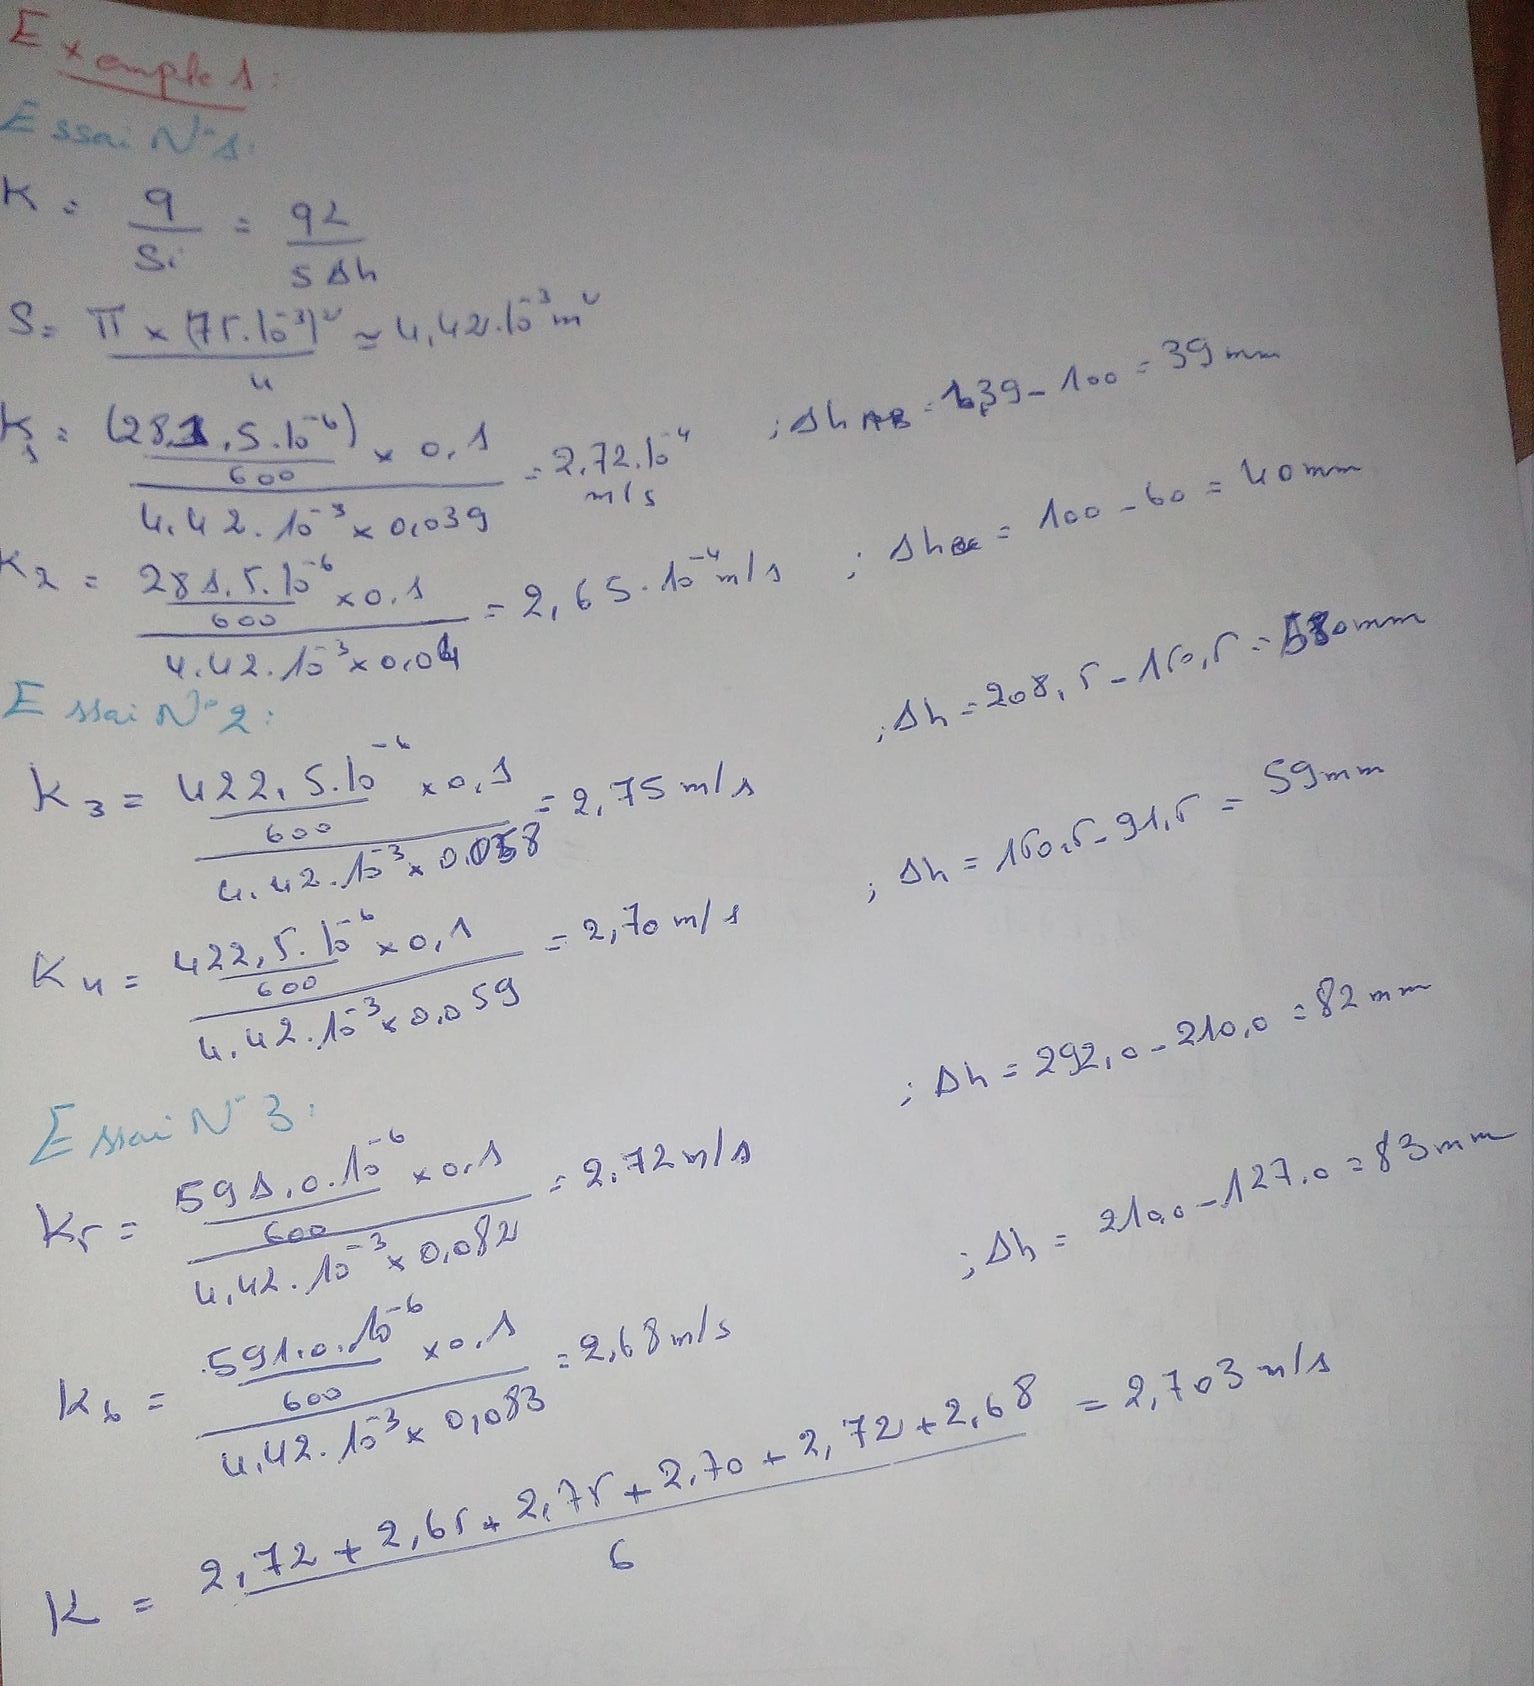 Exemple 1:
Essai N°1:
K = q / Si = qL / SΔh
S = π × (75.10⁻³)² / 4 ≃ 4,42.10⁻³ m²
K1 = (281,5.10⁻⁶) / 600 × 0,1 / 4,42.10⁻³ × 0,039 = 2,72.10⁻⁴ m/s ; Δh AB = 139 - 100 = 39 mm
K2 = 281,5.10⁻⁶ / 600 × 0,1 / 4,42.10⁻³ × 0,04 = 2,65.10⁻⁴ m/s ; Δh BC = 100 - 60 = 40 mm
Essai N°2:
K3 = 422,5.10⁻⁶ / 600 × 0,1 / 4,42.10⁻³ × 0,058 = 2,75 m/s ; Δh = 208,5 - 150,5 = 580 mm
K4 = 422,5.10⁻⁶ / 600 × 0,1 / 4,42.10⁻³ × 0,059 = 2,70 m/s ; Δh = 150,5 - 91,5 = 59 mm
Essai N°3:
K5 = 591,0.10⁻⁶ / 600 × 0,1 / 4,42.10⁻³ × 0,082 = 2,72 m/s ; Δh = 292,0 - 210,0 = 82 mm
K6 = 591,0.10⁻⁶ / 600 × 0,1 / 4,42.10⁻³ × 0,083 = 2,68 m/s ; Δh = 210,0 - 127,0 = 83 mm
K = 2,72 + 2,65 + 2,75 + 2,70 + 2,72 + 2,68 / 6 = 2,703 m/s